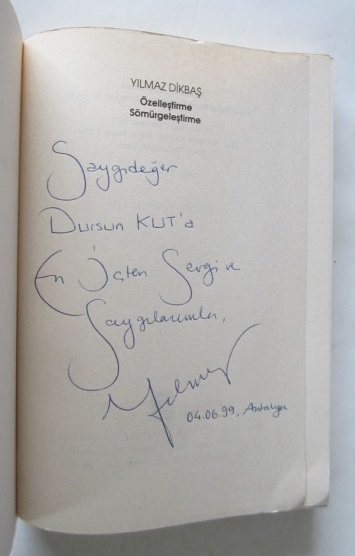 YILMAZ DİKBAŞ
Özelleştirme
Sömürgeleştirme
Saygıdeğer
Dursun KUT'a
En İçten Sevgi ve
Saygılarımla,
Yılmaz
04.06.99, Antalya